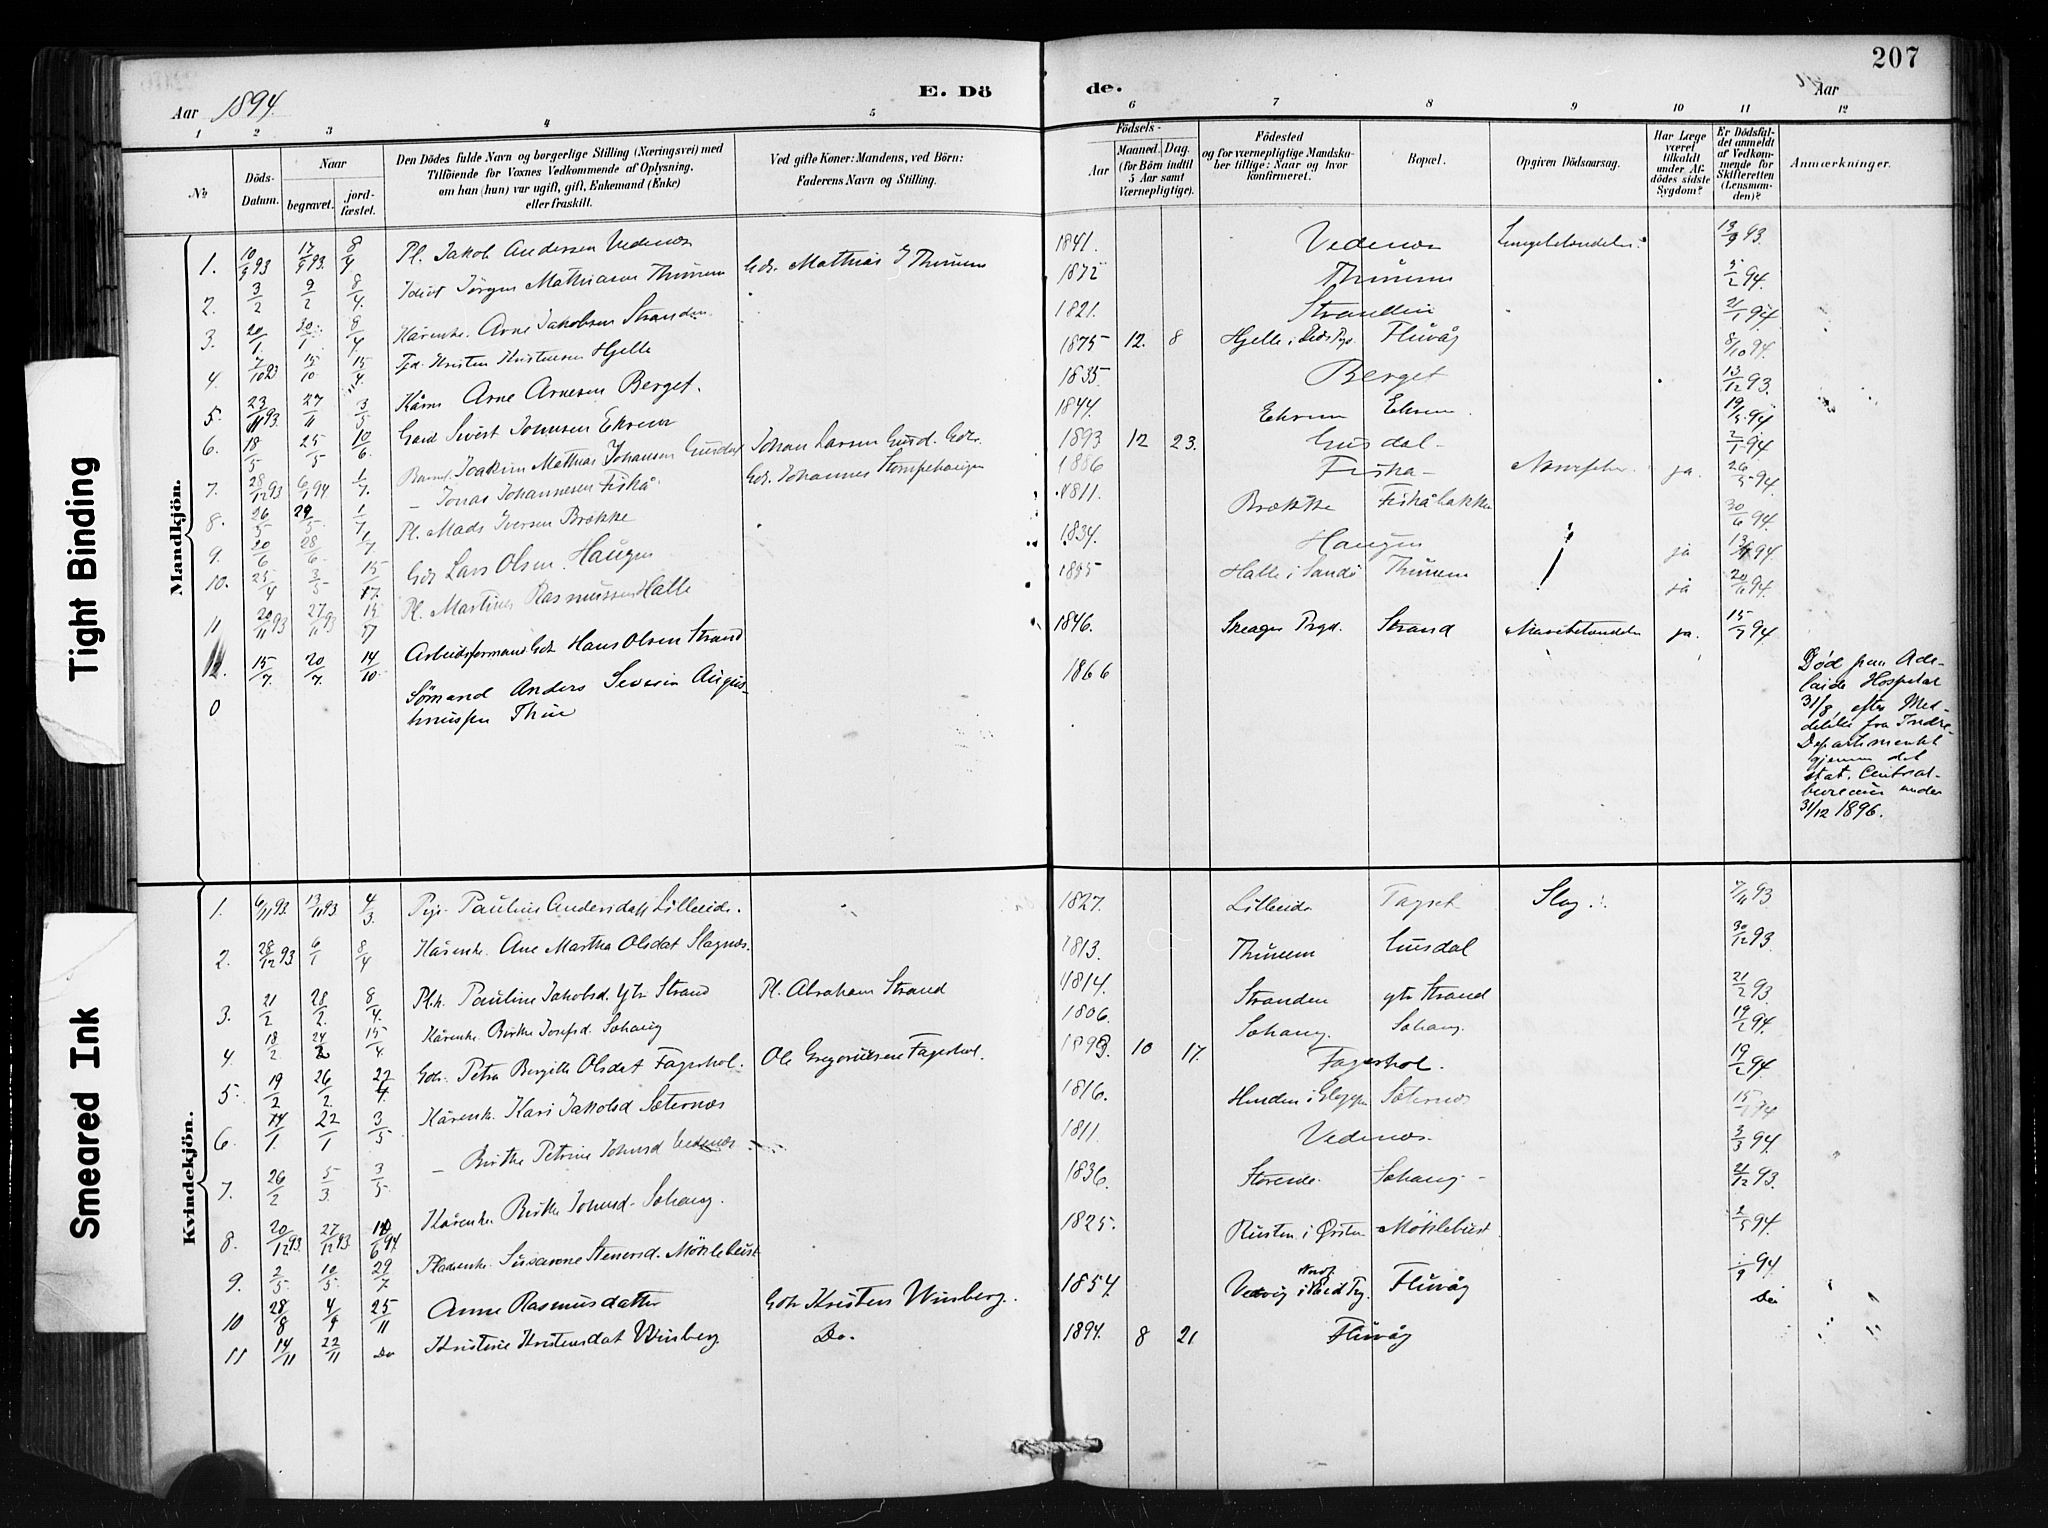 207
Aar 1894.
E. Dö
de.
Aar
1 2 3 4 5 6 7 8 9 10 11 12
No.
Döds-
Datum.
Naar
begravet.
jord-
fæstet.
Den Dödes fulde Navn og borgerlige Stilling (Næringsvei) med
Tilföiende for Voxnes Vedkommende af Oplysning,
om han (hun) var ugift, gift, Enkemand (Enke)
eller fraskilt.
Ved gifte Koner: Mandens, ved Börn:
Faderens Navn og Stilling.
Födsels-
Aar
Maaned.
Dag.
(for Börn indtil
5 Aar samt
Værnepligtige).
Födested
og for værnepligtige Mandska-
ber tillige: Naar og hvor
konfirmeret.
Bopæl.
Opgiven Dödsaarsag.
Har Læge
været
tilkaldt
under Af-
dödes sidste
Sygdom?
Er Dödsfal-
det anmeldt
af Vedkom-
mende for
Skifteretten
(Lensman-
den)?
Anmærkninger.
Tight Binding
Smeared Ink
Mandkjön.
1. 10/9 93 17/9 93. 8/4 Pl. Jakob Andersen Vedenæs 1841. Vedenæs 13/9 93.
2. 3/2 9/2 8/4. Idiot Jörgen Mathiasen Thunem Gdr. Mathias J Thunem 1872 Thunem 5/2 94.
3. 20/1. 20/1 8/4 Kårenke. Arne Jakobsen Stranden. 1821. Stranden 21/1 94.
4. 7/10 93 15/10 15/4. Kristen Kristensen Hjelle 1875 12. 8 Hjelle i Flåvåg 8/10 94.
5. 23/11 93. 27/11 3/5 Kårm Arne Arnesen Berget. 1835. Berget 13/12 93.
6. 18/5 25/5 10/6 Gard Sivert Johnsen Ekrem 1844. Ekrem Ekrem. 19/5 94
7. 28/12 93 6/1 94 1/7. Barnet Joakim Mathias Johansen Gusdal Johan Larsen Gusd. Gdr. 1893 12 23. Gusdal 2/1 94
8. 26/5 29/5 1/7 – Jonas Johannesen Fiskå. Gdr. Johannes 1886 Fiskå ja. 26/5 94.
9. 20/6 28/6 1/7 Pl. Mads Iversen Brække 1811. Brække Fiskåbakken 30/6 94.
10. 25/4 3/5 15/7. Gdr Lars Olsen Haugen 1834. Haugen ja 94
11 20/11 93 27/11 93 15/7 Pl. Martinus Rasmussen Halle 1855 Halle i Sandö Thunem ja 94
12. 15/7. 20/7 14/10 Arbeidsformand Gdr Hans Olsen Strand 1846. Prgd. Strand ja. 15/7 94.
0 Sömand Anders Severin Augus-
tinussen Thue 1866
Död paa Ade-
laide Hospital
31/8, efter Med-
delelse fra Indre-
Departementet
gjennem det
stat. Central-
bureau under
31/12 1896.
Kvindekjön.
1. 6/11 93. 13/11 93 4/3. Pige Pauline Andersdatt Lilleeide. 1827. Lilleeide Slag 7/11 93
2. 28/12 93 6/1 8/4 Kårenke. Ane Martha Olsdat Slagnæs. 1813. Thunem Gusdal 30/12 93.
3. 21/2 28/2. 8/4. Pl.k. Pauline Jakobsd. Ytr Strand Pl. Abraham Strand 1814. Stranden ytr Strand 21/2 93.
4. 18/2. 24/2 15/4 Kårenke. Birthe Josefsd. Sohaug 1806. Sohaug. Sohaug. 19/2 94.
5. 19/2 26/2. 22/4. Gdr. Petra Bergitte Olsdat Fagerhol. Ole Gregoriusen Fagerhol. 1893 10 17. Fagerhol. 19/2 94.
6. 14/1. 22/1 3/5 Kårenk. Kari Jakobsd Sæternæs 1816. Sæternæs 94
7. 26/2 5/3 3/5 – Birthe Petrine Johnsd Vedenæs 1811. Vedenæs. 3/3 94.
8. 20/12 93. 27/12 93. 10/6 94. Kårenke Birthe Johnsd. Sohaug. 1836. Storeide. Sohaug 21/12 93.
9. 2/5. 10/5 29/7 Pladsenke. Susanne Steffensd. Möklebust 1825. Rusten i Örsten Möklebust. 2/5 94.
10 28/8 4/9 25/11 Anne Rasmusdatter Gdr Kristen Winberg. 1854. Flåvåg /9 94.
11 14/11 22/11 Do Kristine Kristensdat Winberg Do. 1894. 8 21 Flåvåg Do